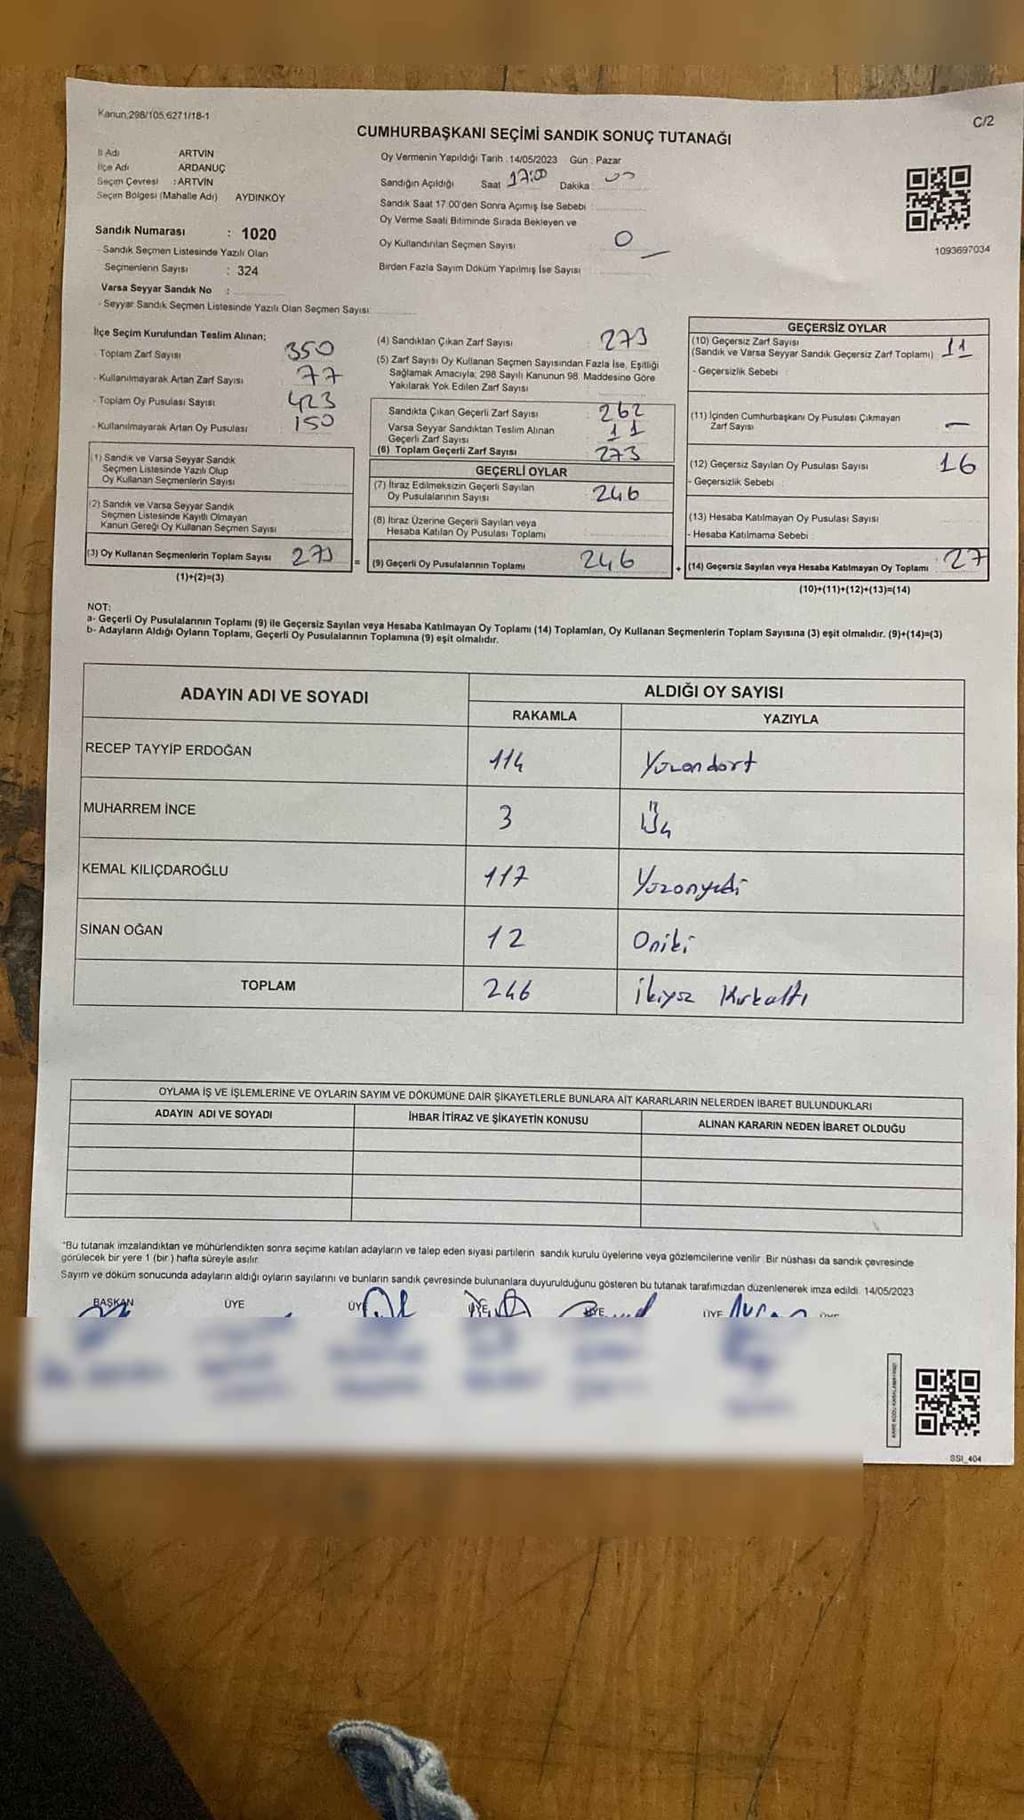 Kanun,298/105,6271/18-1
C/2
CUMHURBAŞKANI SEÇİMİ SANDIK SONUÇ TUTANAĞI
İl Adı ARTVİN
İlçe Adı ARDANUÇ
Seçim Çevresi : ARTVİN
Seçim Bölgesi (Mahalle Adı) AYDINKÖY
Sandık Numarası : 1020
- Sandık Seçmen Listesinde Yazılı Olan
Seçmenlerin Sayısı : 324
Varsa Seyyar Sandık No :
- Seyyar Sandık Seçmen Listesinde Yazılı Olan Seçmen Sayısı
Oy Vermenin Yapıldığı Tarih : 14/05/2023 Gün : Pazar
Sandığın Açıldığı Saat 17:00 Dakika
Sandık Saat 17:00'den Sonra Açımış İse Sebebi
Oy Verme Saati Bitiminde Sırada Bekleyen ve
Oy Kullandırılan Seçmen Sayısı 0
Birden Fazla Sayım Döküm Yapılmış İse Sayısı
1093697034
İlçe Seçim Kurulundan Teslim Alınan;
- Toplam Zarf Sayısı 350
- Kullanılmayarak Artan Zarf Sayısı 77
- Toplam Oy Pusulası Sayısı 423
- Kullanılmayarak Artan Oy Pusulası 150
(1) Sandık ve Varsa Seyyar Sandık
Seçmen Listesinde Yazılı Olup
Oy Kullanan Seçmenlerin Sayısı
(2) Sandık ve Varsa Seyyar Sandık
Seçmen Listesinde Kayıtlı Olmayan
Kanun Gereği Oy Kullanan Seçmen Sayısı
(3) Oy Kullanan Seçmenlerin Toplam Sayısı 273
(1)+(2)=(3)
(4) Sandıktan Çıkan Zarf Sayısı 273
(5) Zarf Sayısı Oy Kullanan Seçmen Sayısından Fazla İse, Eşitliği
Sağlamak Amacıyla; 298 Sayılı Kanunun 98. Maddesine Göre
Yakılarak Yok Edilen Zarf Sayısı
Sandıkta Çıkan Geçerli Zarf Sayısı 262
Varsa Seyyar Sandıktan Teslim Alınan
Geçerli Zarf Sayısı 11
(6) Toplam Geçerli Zarf Sayısı 273
GEÇERLİ OYLAR
(7) İtiraz Edilmeksizin Geçerli Sayılan
Oy Pusulalarının Sayısı 246
(8) İtiraz Üzerine Geçerli Sayılan veya
Hesaba Katılan Oy Pusulası Toplamı
= (9) Geçerli Oy Pusulalarının Toplamı 246
GEÇERSİZ OYLAR
(10) Geçersiz Zarf Sayısı
(Sandık ve Varsa Seyyar Sandık Geçersiz Zarf Toplamı) 11
- Geçersizlik Sebebi :
(11) İçinden Cumhurbaşkanı Oy Pusulası Çıkmayan
Zarf Sayısı —
(12) Geçersiz Sayılan Oy Pusulası Sayısı 16
- Geçersizlik Sebebi
(13) Hesaba Katılmayan Oy Pusulası Sayısı
- Hesaba Katılmama Sebebi
+ (14) Geçersiz Sayılan veya Hesaba Katılmayan Oy Toplamı 27
(10)+(11)+(12)+(13)=(14)
NOT:
a- Geçerli Oy Pusulalarının Toplamı (9) ile Geçersiz Sayılan veya Hesaba Katılmayan Oy Toplamı (14) Toplamları, Oy Kullanan Seçmenlerin Toplam Sayısına (3) eşit olmalıdır. (9)+(14)=(3)
b- Adayların Aldığı Oyların Toplamı, Geçerli Oy Pusulalarının Toplamına (9) eşit olmalıdır.
ADAYIN ADI VE SOYADI ALDIĞI OY SAYISI
RAKAMLA YAZIYLA
RECEP TAYYİP ERDOĞAN 114 Yüzondört
MUHARREM İNCE 3 Üç
KEMAL KILIÇDAROĞLU 117 Yüzonyedi
SİNAN OĞAN 12 Oniki
TOPLAM 246 İkiyüz Kırkaltı
OYLAMA İŞ VE İŞLEMLERİNE VE OYLARIN SAYIM VE DÖKÜMÜNE DAİR ŞİKAYETLERLE BUNLARA AİT KARARLARIN NELERDEN İBARET BULUNDUKLARI
ADAYIN ADI VE SOYADI İHBAR İTİRAZ VE ŞİKAYETİN KONUSU ALINAN KARARIN NEDEN İBARET OLDUĞU
"Bu tutanak imzalandıktan ve mühürlendikten sonra seçime katılan adayların ve talep eden siyasi partilerin sandık kurulu üyelerine veya gözlemcilerine verilir. Bir nüshası da sandık çevresinde
görülecek bir yere 1 (bir ) hafta süreyle asılır.
Sayım ve döküm sonucunda adayların aldığı oyların sayılarını ve bunların sandık çevresinde bulunanlara duyurulduğunu gösteren bu tutanak tarafımızdan düzenlenerek imza edildi. 14/05/2023
BAŞKAN ÜYE ÜYE ÜYE ÜYE ÜYE
SSI_404